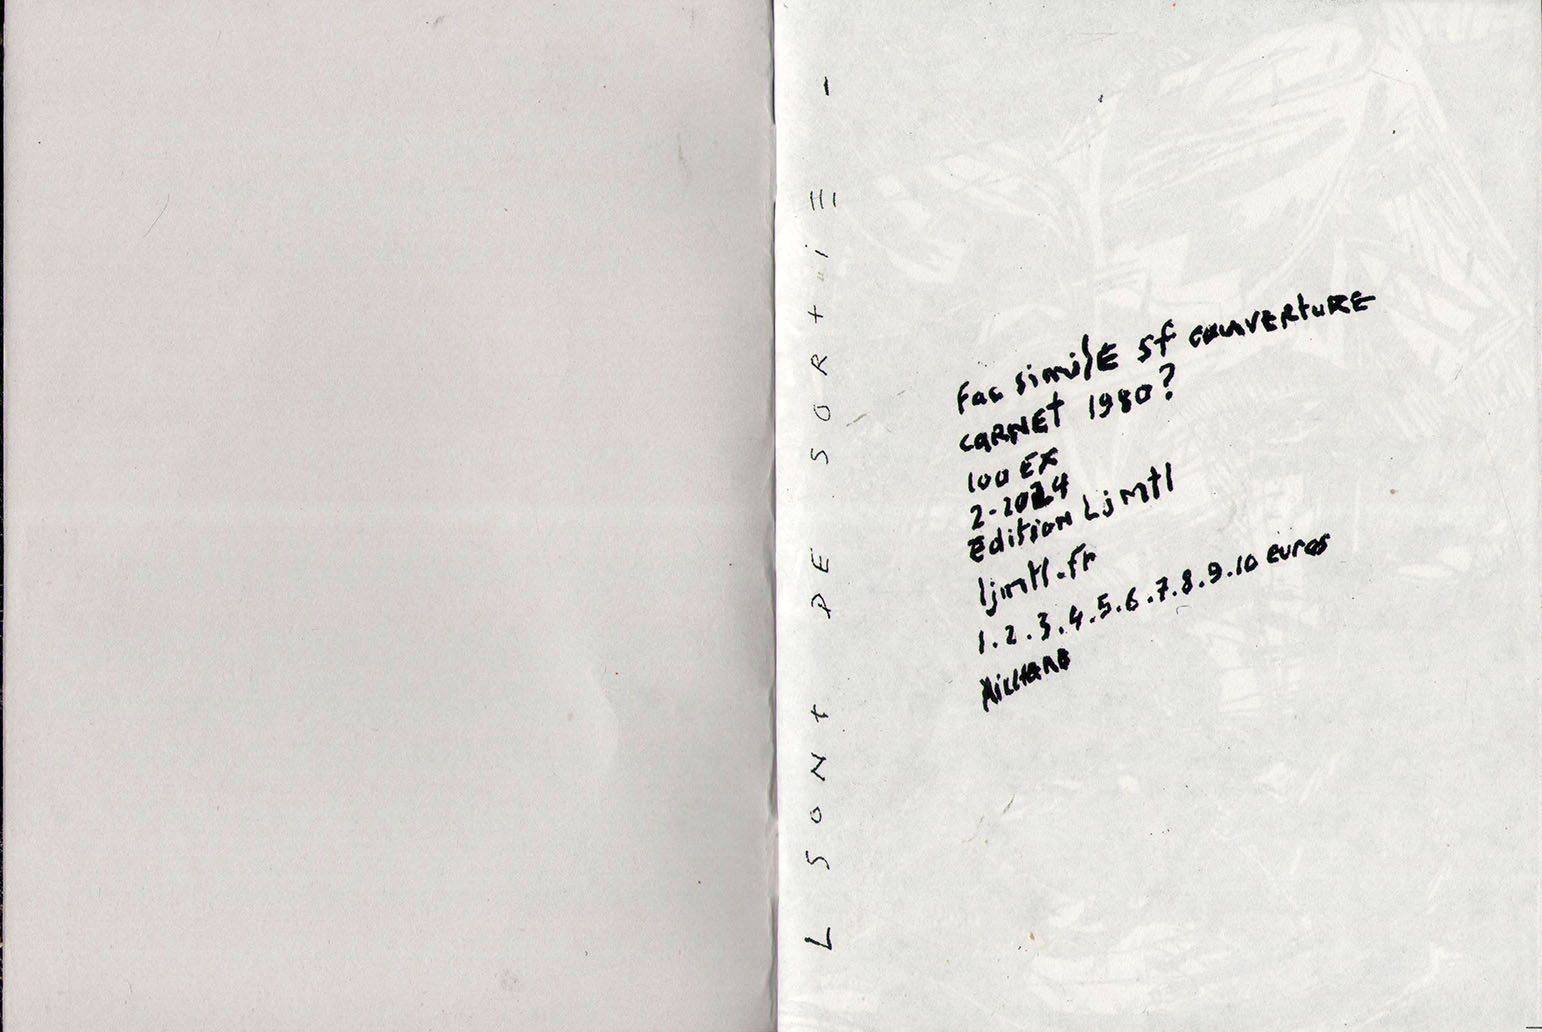 L SONt DE SORtiE -
Fac similE sf couvERtuRE
caRNEt 1980?
100 EX
2-2024
Edition Ljmtl
ljmtl.fr
1.2.3.4.5.6.7.8.9.10 euros